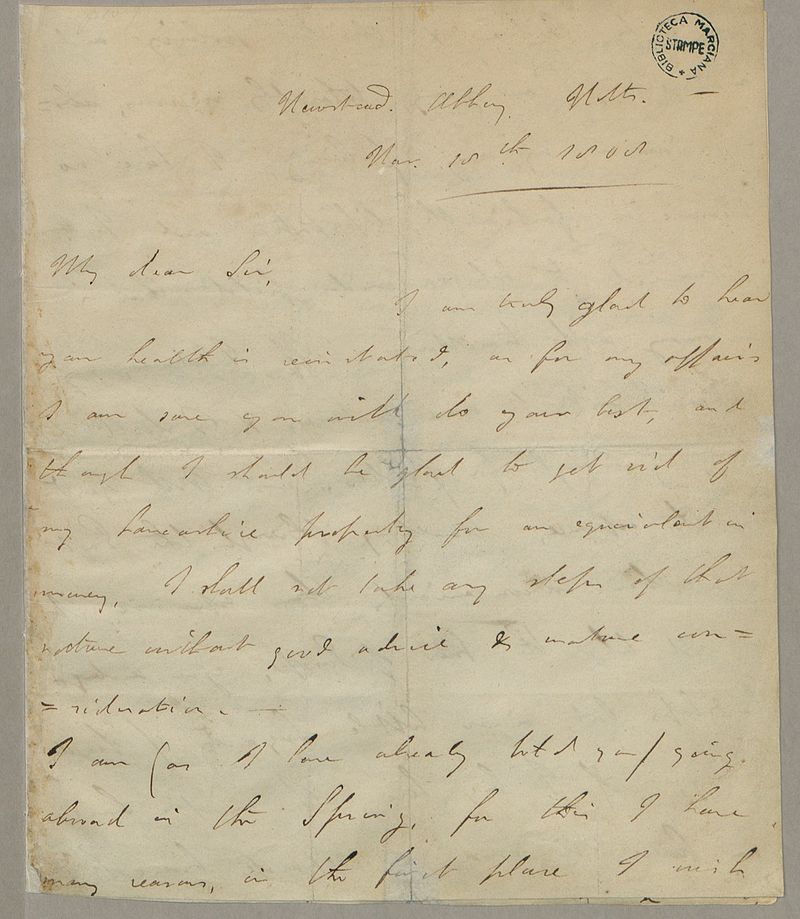 BIBLIOTECA MARCIANA
STAMPE
Newstead Abbey. Notts. —
Nov. 18th 1808
My dear Sir,
I am truly glad to hear
your health is reinstated, as for my affairs
I am sure you will do your best, and
though I should be glad to get rid of
my Lancashire property for an equivalent in
money, I shall not take any steps of that
nature without good advice & mature con=
=sideration. —
I am (as I have already told you) going
abroad in the Spring, for this I have
many reasons, in the first place I wish